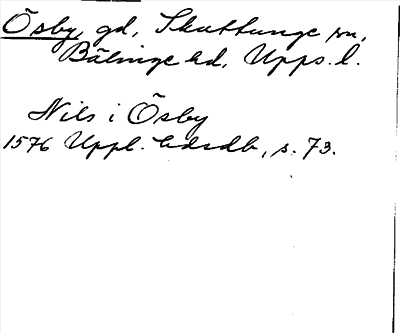 Ösby, gd, Skuttunge sn,
Bälinge hd, Upps. l.
Nils i Ösby
1576 Uppl. hdrdb, s. 73.